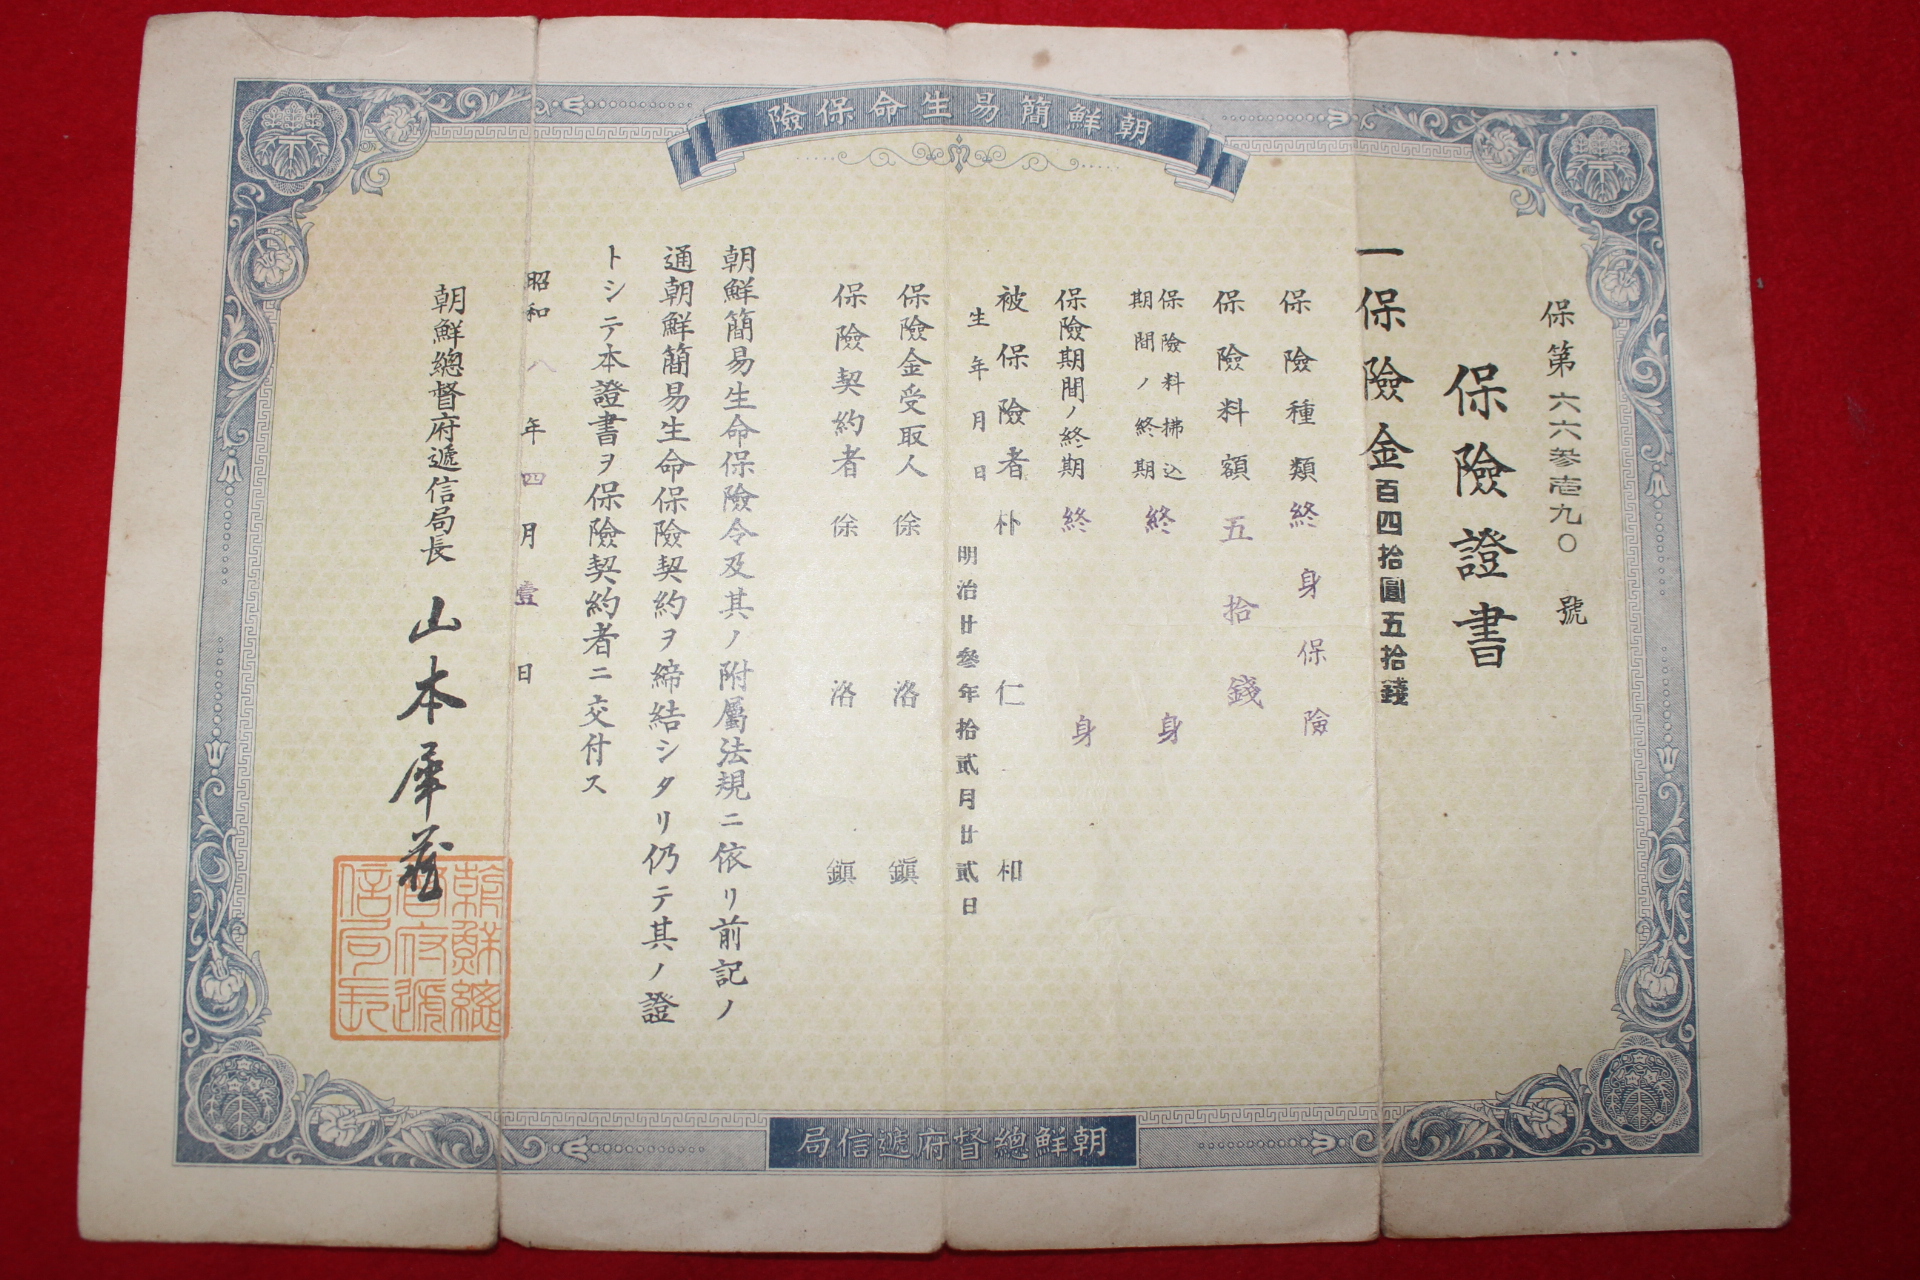 朝鮮簡易生命保險
保第六六參壱九〇號
保險證書
一保險金百四拾圓五拾錢
保險種類終身保險
保險料額五拾錢
保險料拂込
期間ノ終期終身
保險期間ノ終期終身
被保險者朴仁和
生年月日明治廿參年拾貳月廿貳日
保險金受取人徐洛鎭
保險契約者徐洛鎭
朝鮮簡易生命保險令及其ノ附屬法規ニ依リ前記ノ
通朝鮮簡易生命保險契約ヲ締結シタリ仍テ其ノ證
トシテ本證書ヲ保險契約者ニ交付ス
昭和八年四月壹日
朝鮮總督府遞信局長山本犀藏
朝鮮總
督府遞
信局長
朝鮮總督府遞信局